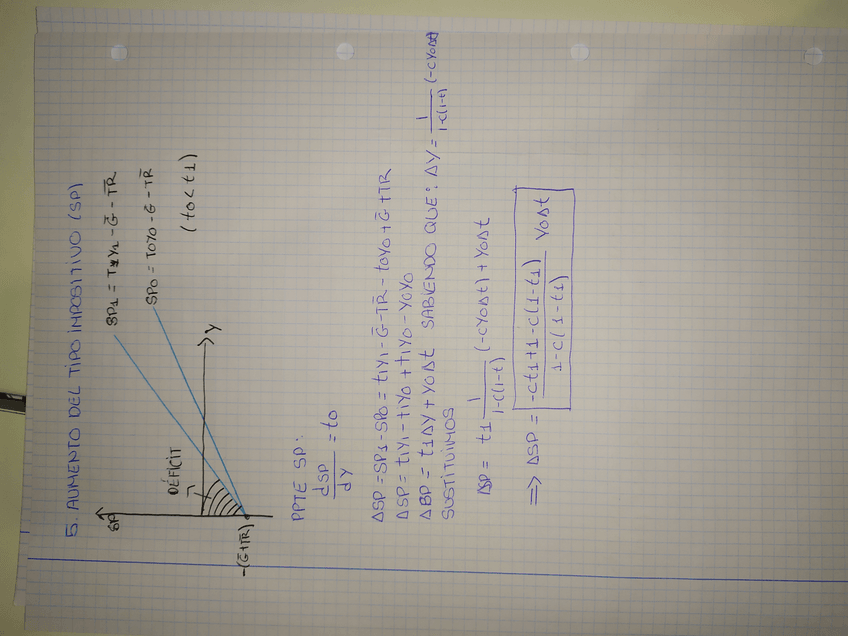 5. AUMENTO DEL TIPO IMPOSITIVO (SP)
SP
SP1 = T1Y1 - G̅ - T̅R̅
SP0 = T0Y0 - G̅ - T̅R̅
(t0 < t1)
DÉFICIT
Y
-(G̅+T̅R̅)
PPTE SP:
dSP/dY = t0
ΔSP = SP1 - SP0 = t1Y1 - G̅ - T̅R̅ - t0Y0 + G̅ + TR
ΔSP = t1Y1 - t1Y0 + t1Y0 - Y0Y0
ΔBP = t1ΔY + Y0Δt SABIENDO QUE: ΔY = 1/(1-c(1-t)) (-cY0Δt)
SUSTITUIMOS
ΔSP = t1 1/(1-c(1-t)) (-cY0Δt) + Y0Δt
⟹ ΔSP = (-ct1+1-c(1-t1))/(1-c(1-t1)) Y0Δt